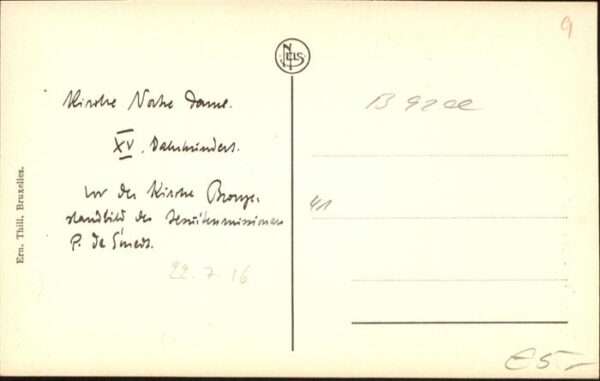 9
NELS
Kirche Notre Dame.
XV. Jahrhundert.
vor der Kirche Bronze-
standbild des Jesuitenmissionars
P. de Smedt.
22.7.16
41
Ern. Thill, Bruxelles.
E 5,-